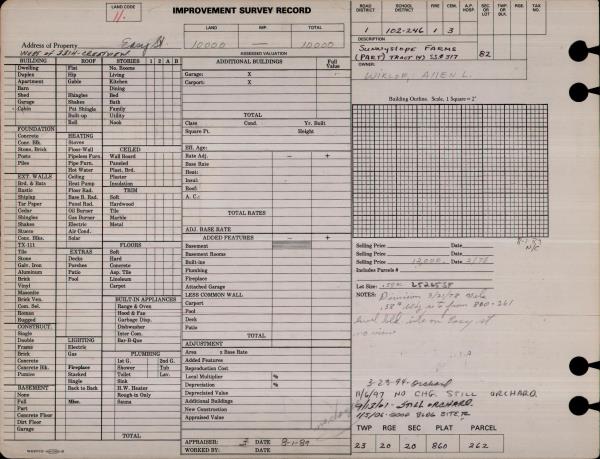 LAND CODE
11.
IMPROVEMENT SURVEY RECORD
LAND IMP. TOTAL
10000 — 10000
ASSESSED VALUATION
Address of Property Easy St
West of 3314 - Crestview
ROAD DISTRICT SCHOOL DISTRICT FIRE CEM. A.P. HOSP. SEC OR LOT TWP OR BLK. RGE. TAX NO.
1 102-246 1 3 82
DESCRIPTION
Sunnyslope Farms
(Part) Tract 14) SS# 317
OWNER:
Wikloe, Allen L.
BUILDING ROOF STORIES 1 2 A B
Dwelling Flat No. Rooms
Duplex Hip Living
Apartment Gable Kitchen
Barn Dining
Shed Shingles Bed
Garage Shakes Bath
Cabin Pat Shingle Family
Built-up Utility
Roll Nook
FOUNDATION
Concrete HEATING
Conc. Blk. Stoves
Stone, Brick Floor-Wall CEILED
Posts Pipeless Furn. Wall Board
Piles Pipe Furn. Paneled
Hot Water Plast. Brd.
EXT. WALLS Ceiling Plaster
Brd. & Bats Heat Pump Insulation
Rustic Floor Rad. TRIM
Shiplap Base B. Rad. Soft
Tar Paper Panel Rad. Hardwood
Cedar Oil Burner Tile
Shingles Gas Burner Marble
Shakes Electric Metal
Stucco Air Cond.
Conc. Blks. Solar
TX-111 FLOORS
Tile EXTRAS Soft
Stone Decks Hard
Galv. Iron Porches Concrete
Aluminum Patio Asp. Tile
Brick Pool Linoleum
Vinyl Carpet
Masonite
Brick Ven. BUILT-IN APPLIANCES
Com. Sel. Range & Oven
Roman Hood & Fan
Rugged Garbage Disp.
CONSTRUCT. Dishwasher
Single Inter Com.
Double LIGHTING Bar-B-Que
Frame Electric
Brick Gas PLUMBING
Concrete 1st G. 2nd G.
Concrete Blk. Fireplace Shower Tub
Pumice Stacked Toilet Lavs.
Single Sink
BASEMENT Back to Back H.W. Heater
None Rough-in Only
Full Misc. Sauna
Part
Concrete Floor
Dirt Floor
Garage
TOTAL
ADDITIONAL BUILDINGS Full Value
Garage: X
Carport: X
TOTAL
Class Cond. Yr. Built
Square Ft. Height
Eff. Age:
Rate Adj. − +
Base Rate
Heat:
Insul:
Roof:
A. C.:
TOTAL RATES
ADJ. BASE RATE
ADDED FEATURES − +
Basement
Basement Rooms
Built-ins
Plumbing
Fireplace
Attached Garage
LESS COMMON WALL
Carport
Pool
Deck
Patio
TOTAL
ADJUSTMENT
Area x Base Rate
Added Features
Reproduction Cost
Local Multiplier %
Depreciation %
Depreciated Value
Additional Buildings
New Construction
Appraised Value
APPRAISER: 3 DATE 8-1-89
WORKED BY: DATE
Building Outline. Scale, 1 Square = 2'
8-1-89
N/C
Selling Price Date
Selling Price 12,000 Date 2/78
Selling Price Date
Includes Parcels #
Lot Size:
NOTES:
3-23-94-Orchard
11/6/97 NO CHG. STILL ORCHARD.
9/13/01 - STILL ORCHARD.
1/3/06 - GOOD BLDG SITE
TWP RGE SEC PLAT PARCEL
23 20 20 860 262